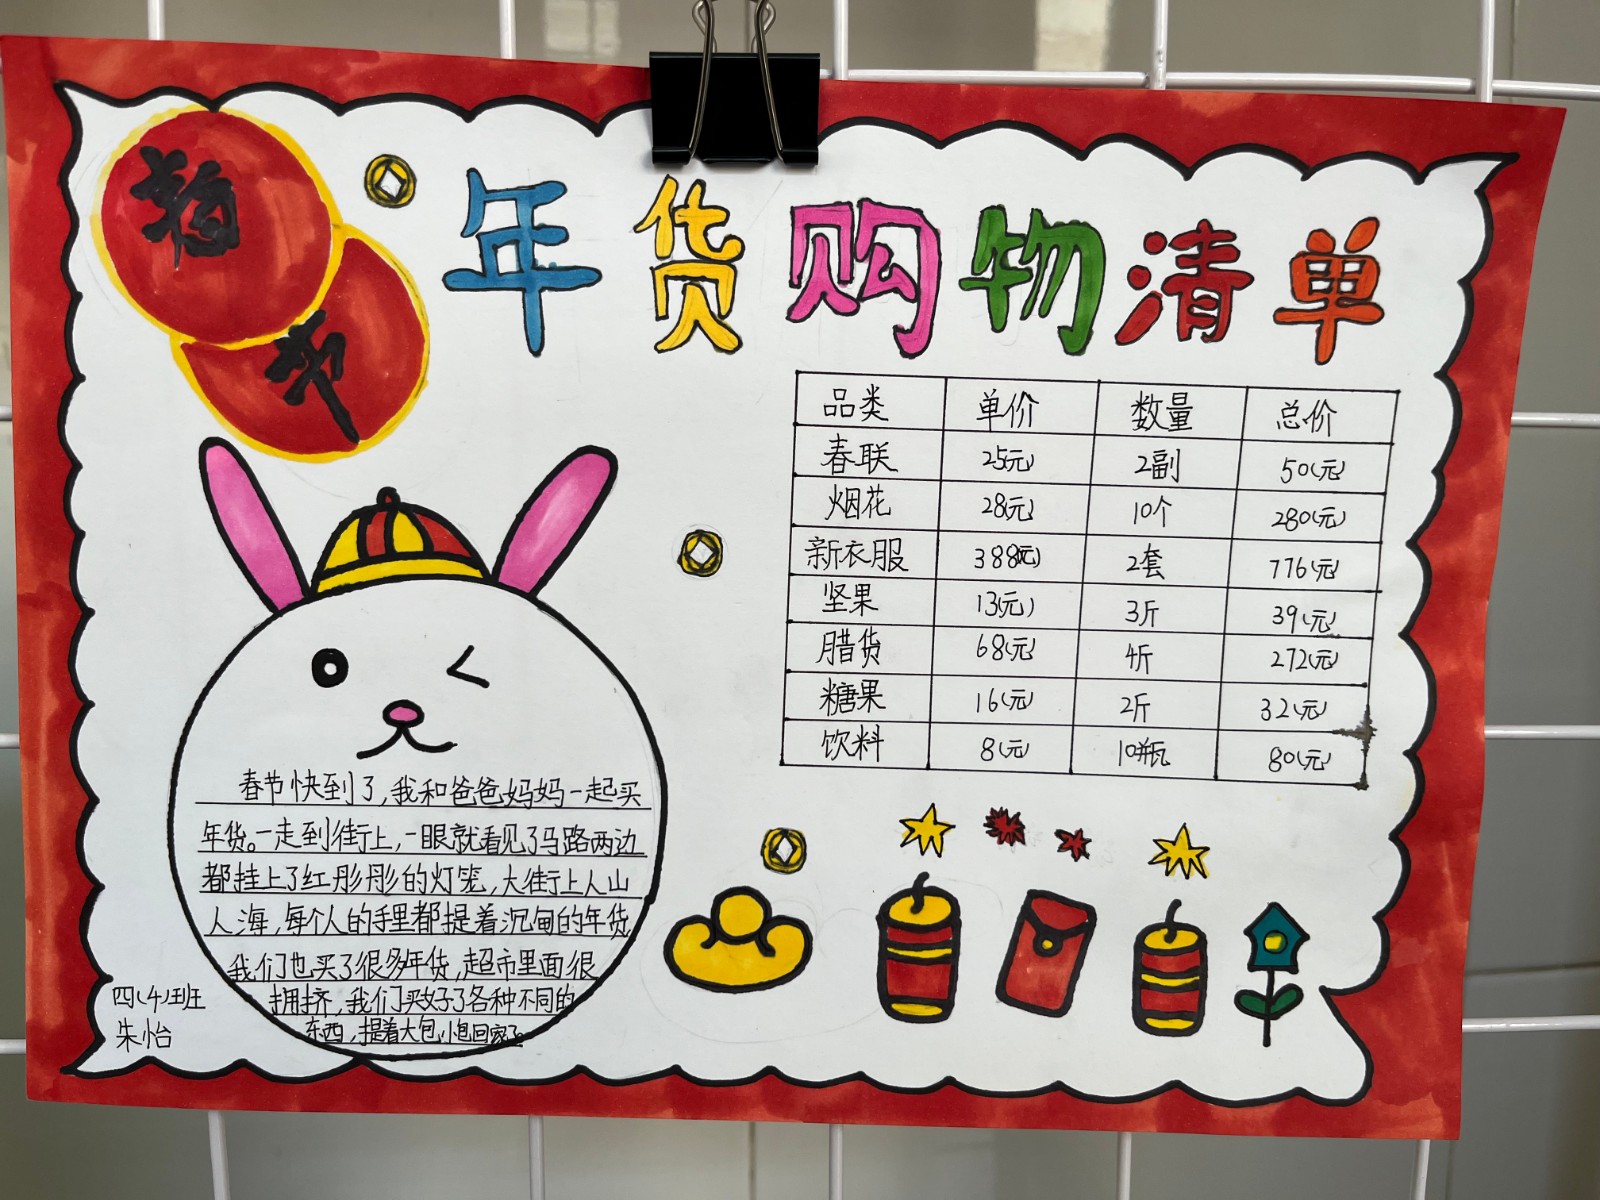 春
节
年货购物清单
品类 单价 数量 总价
春联 25(元) 2副 50(元)
烟花 28(元) 10个 280(元)
新衣服 388(元) 2套 776(元)
坚果 13(元) 3斤 39(元)
腊货 68(元) 4斤 272(元)
糖果 16(元) 2斤 32(元)
饮料 8(元) 10瓶 80(元)
春节快到了,我和爸爸妈妈一起买
年货。一走到街上,一眼就看见了马路两边
都挂上了红彤彤的灯笼,大街上人山
人海,每个人的手里都提着沉甸的年货
我们也买了很多年货,超市里面很
拥挤,我们买好了各种不同的
东西,提着大包小包回家了。
四(4)班
朱怡